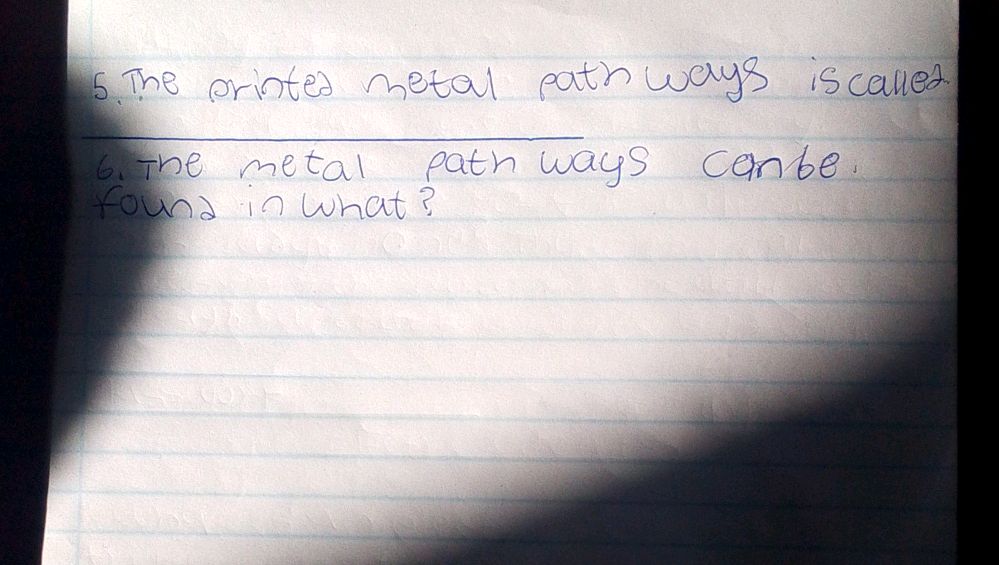 5. The printed metal path ways is called
6. The metal path ways can be.
found in what?